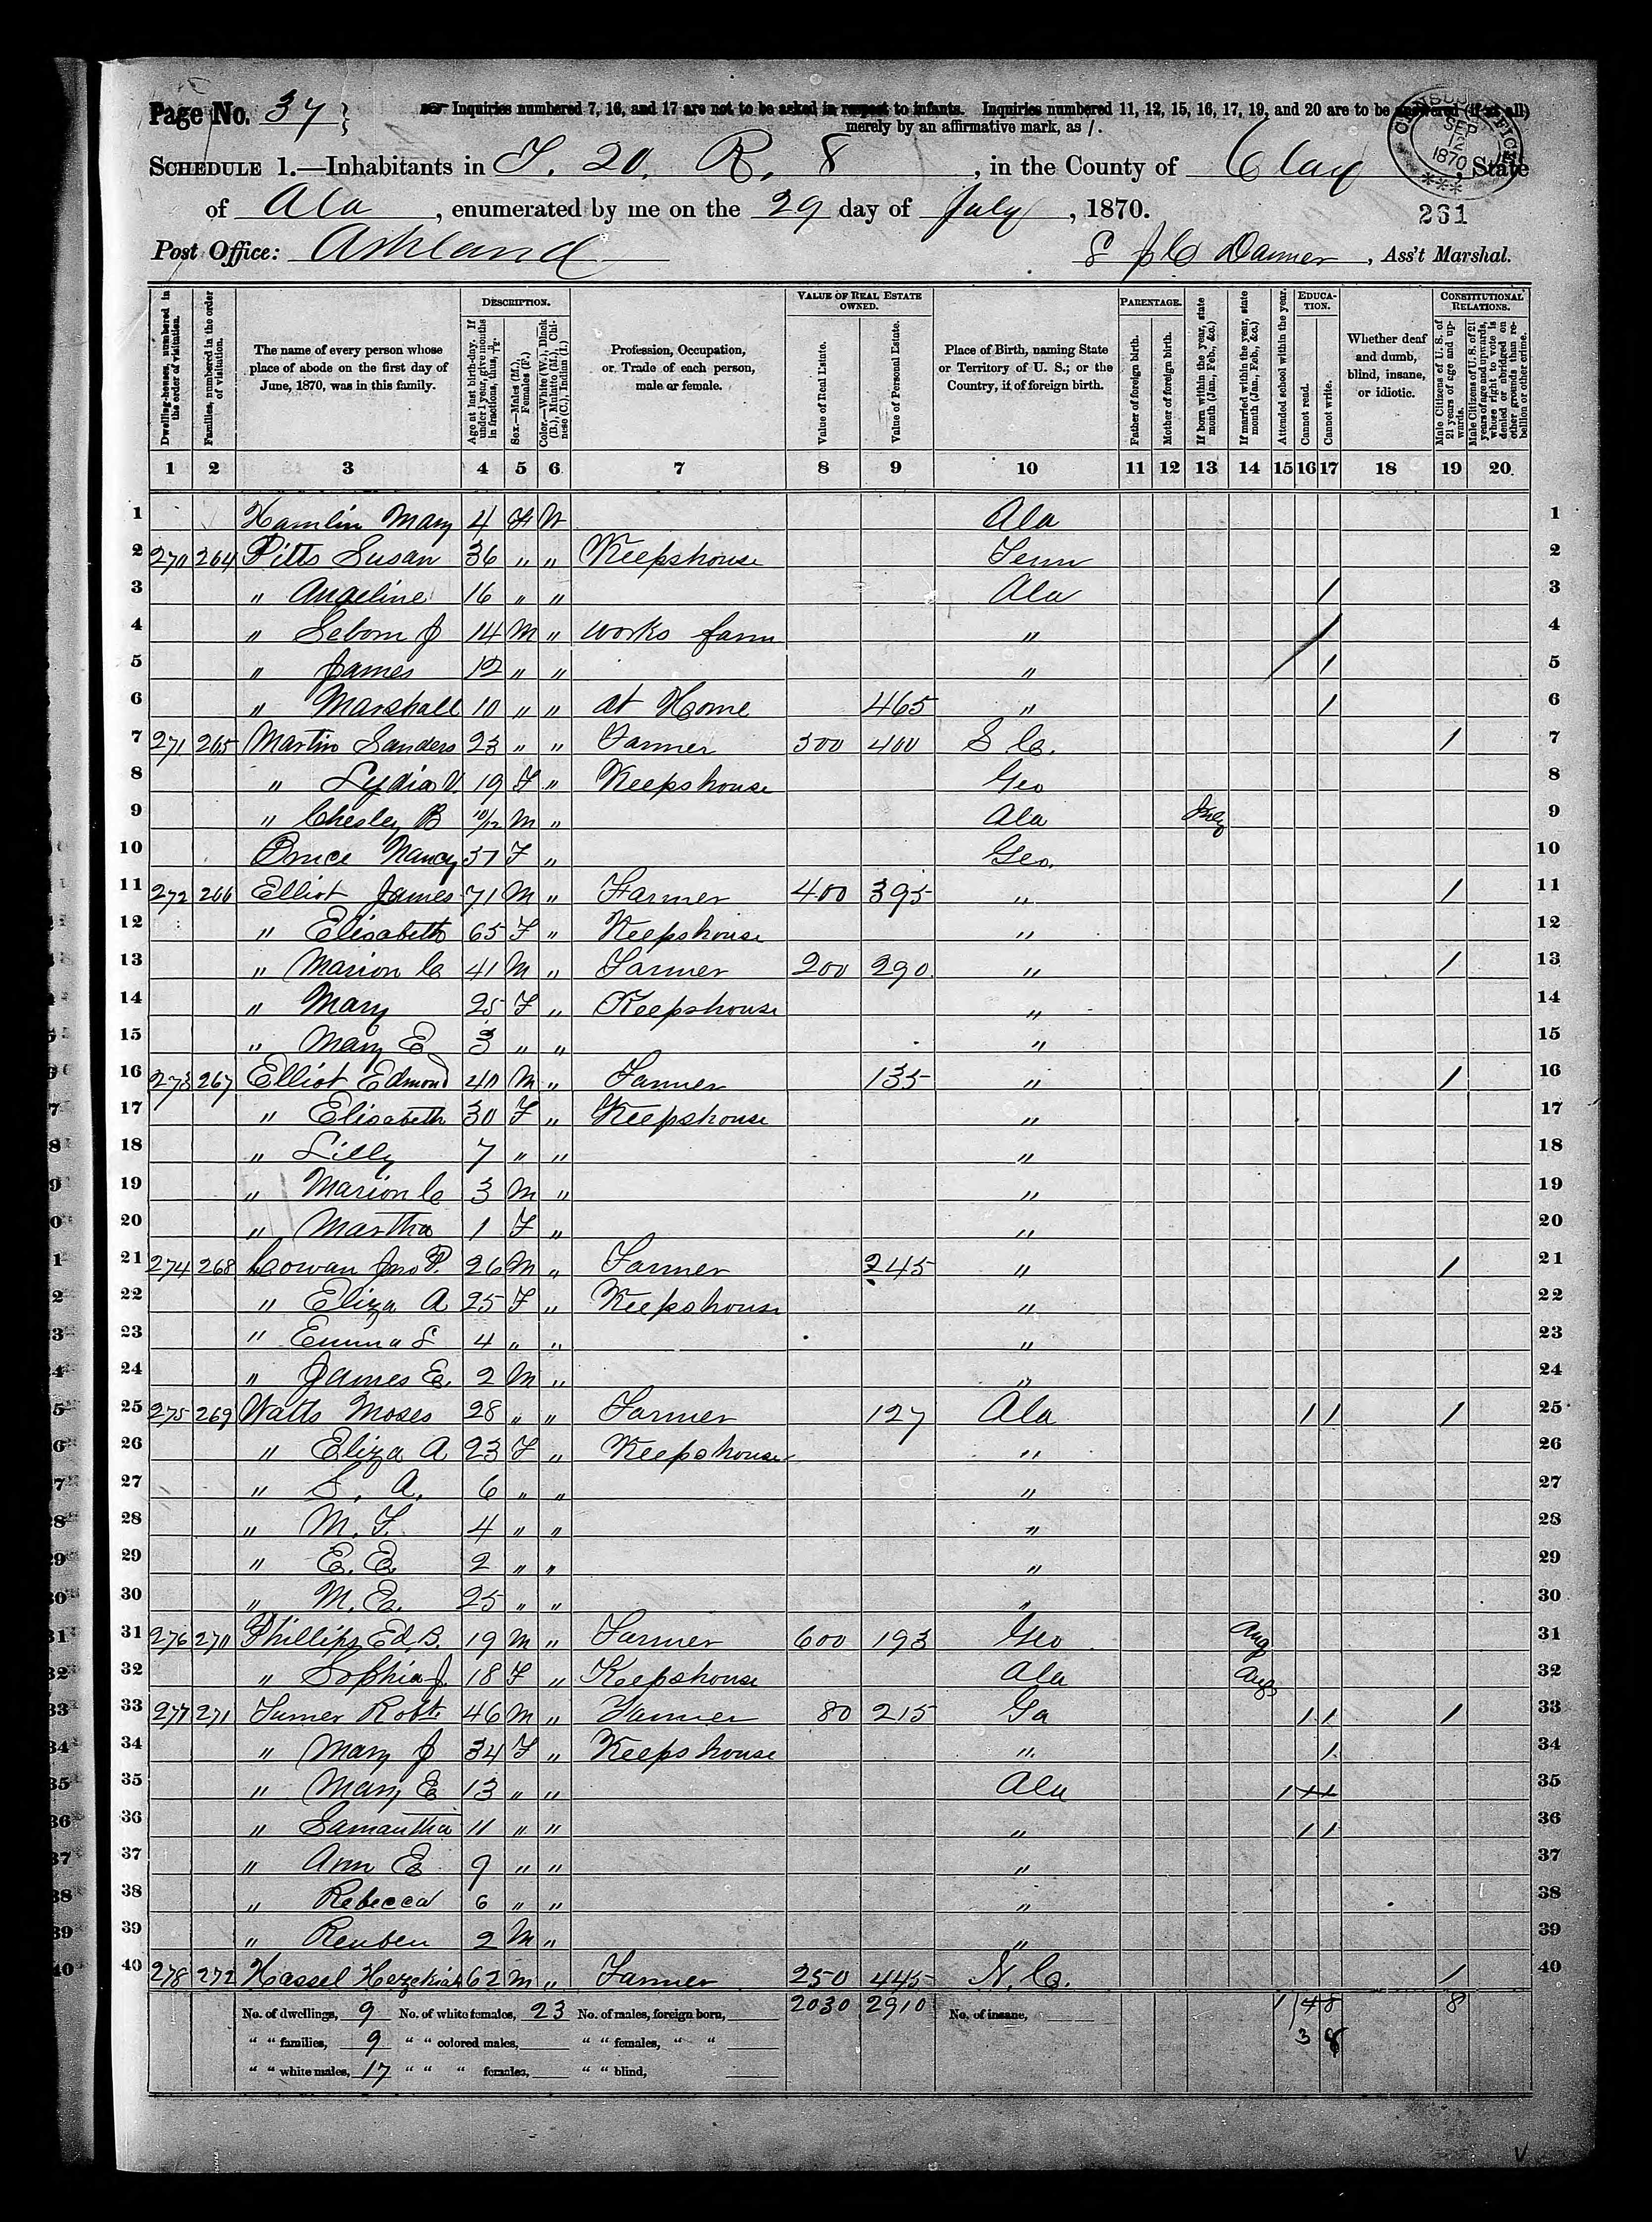 Page No. 34
Inquiries numbered 7, 16, and 17 are not to be asked in respect to infants. Inquiries numbered 11, 12, 15, 16, 17, 19, and 20 are to be answered (if at all)
merely by an affirmative mark, as /.
CENSUS OFFICE SEP 12 1870
SCHEDULE 1.—Inhabitants in T. 20. R. 8, in the County of Clay, State
of Ala, enumerated by me on the 29 day of July, 1870.
261
Post Office: Ashland
Danner, Ass't Marshal.
Dwelling-houses, numbered in the order of visitation.
Families, numbered in the order of visitation.
The name of every person whose place of abode on the first day of June, 1870, was in this family.
DESCRIPTION.
Age at last birth-day. If under 1 year, give months in fractions, thus, 3/12.
Sex.—Males (M.), Females (F.)
Color.—White (W.), Black (B.), Mulatto (M.), Chinese (C.), Indian (I.)
Profession, Occupation, or Trade of each person, male or female.
VALUE OF REAL ESTATE OWNED.
Value of Real Estate.
Value of Personal Estate.
Place of Birth, naming State or Territory of U. S.; or the Country, if of foreign birth.
PARENTAGE.
Father of foreign birth.
Mother of foreign birth.
If born within the year, state month (Jan., Feb., &c.)
If married within the year, state month (Jan., Feb., &c.)
Attended school within the year.
EDUCATION.
Cannot read.
Cannot write.
Whether deaf and dumb, blind, insane, or idiotic.
CONSTITUTIONAL RELATIONS.
Male Citizens of U. S. of 21 years of age and upwards.
Male Citizens of U. S. of 21 years of age and upwards, whose right to vote is denied or abridged on other grounds than rebellion or other crime.
1 2 3 4 5 6 7 8 9 10 11 12 13 14 15 16 17 18 19 20
1 Hamlin Mary 4 F W Ala 1
2 270 264 Pitts Susan 36 " " Keepshouse Tenn 2
3 " Angeline 16 " " Ala / 3
4 " Seborn J 14 M " works farm " / 4
5 " James 12 " " " / 5
6 " Marshall 10 " " at Home 465 " / 6
7 271 265 Martin Sanders 23 " " Farmer 300 400 S C. / 7
8 " Lydia V. 19 F " Keepshouse Geo 8
9 " Chesley B 10/12 M " Ala July 9
10 Nancy 37 F " Geo. 10
11 272 266 Elliot James 71 M " Farmer 400 395 " / 11
12 " Elisabeth 65 F " Keepshouse " 12
13 " Marion C 41 M " Farmer 200 290 " / 13
14 " Mary 25 F " Keepshouse " 14
15 " Mary E 3 " " " 15
16 273 267 Elliot Edmond 40 M " Farmer 135 " / 16
17 " Elisabeth 30 F " Keepshouse " 17
18 " Lilly 7 " " " 18
19 " Marion C 3 M " " 19
20 " Martha 1 F " " 20
21 274 268 Cowan Jno P. 26 M " Farmer 245 " / 21
22 " Eliza A 25 F " Keepshouse " 22
23 " Emma S 4 " " " 23
24 " James E. 2 M " " 24
25 275 269 Watts Moses 28 " " Farmer 127 Ala / / / 25
26 " Eliza A 23 F " Keepshouse " 26
27 " S. A. 6 " " " 27
28 " M. F. 4 " " " 28
29 " E. E. 2 " " " 29
30 " M. E. 25 " " " 30
31 276 270 Phillips Ed B. 19 M " Farmer 600 193 Geo Aug 31
32 " Sophia J. 18 F " Keepshouse Ala Aug 32
33 277 271 Turner Robt. 46 M " Farmer 80 215 Ga / / / 33
34 " Mary J 34 F " Keeps house " / 34
35 " Mary E 13 " " Ala / 35
36 " Samantha 11 " " " / / 36
37 " Ann E 9 " " " 37
38 " Rebecca 6 " " " 38
39 " Reuben 2 M " " 39
40 278 272 Hassel Hezekiah 62 M " Farmer 250 445 N. C. / 40
No. of dwellings, 9 No. of white females, 23 No. of males, foreign born, 2030 2910 No. of insane, 1 8
" " families, 9 " " colored males, " " females, " " 3 8
" " white males, 17 " " " females, " " blind,